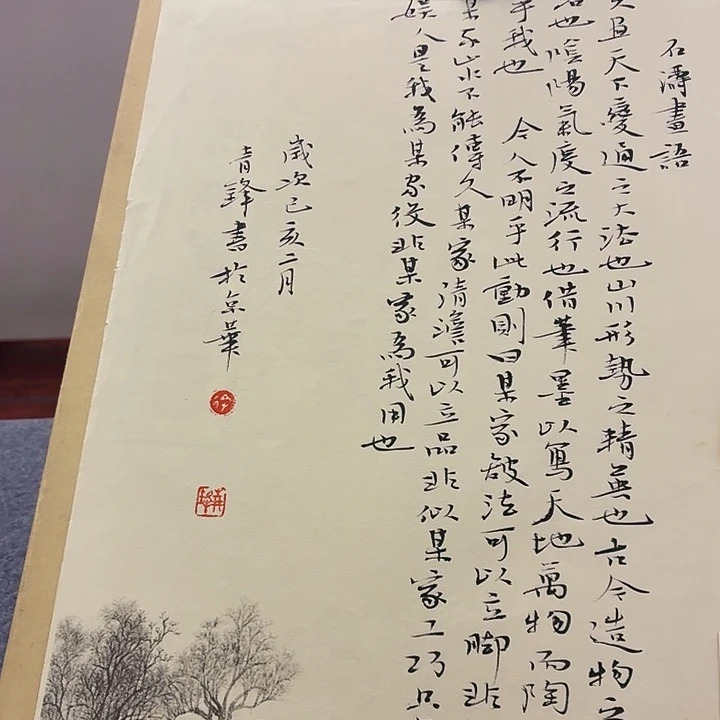 石濤畫語
天下變通之大法也山川形勢之精英也古今造物之
也陰陽氣度之流行也借筆墨以寫天地萬物而陶
乎我也 今人不明乎此動則曰某家皴法可以立腳非
某家山水不能傳久某家清澹可以立品非似某家工巧只
娛人是我為某家役非某家為我用也
歲次己亥二月
青鋒書於京華